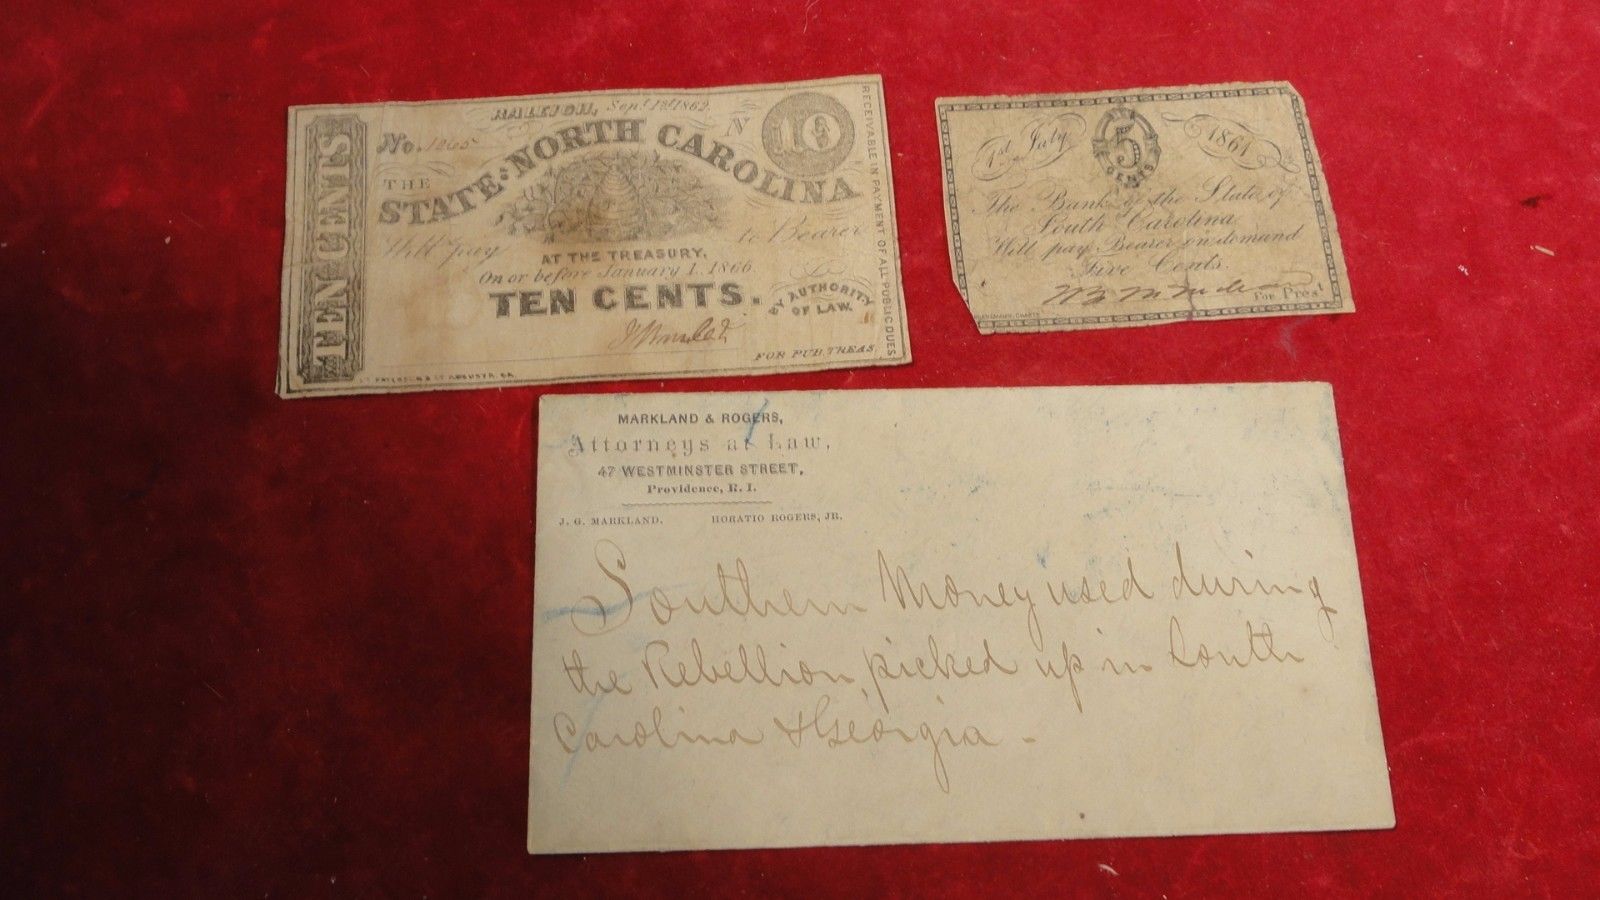 RALEIGH, Sept. 1st 1862.
No.
10
THE
STATE OF NORTH CAROLINA
Will pay to Bearer
AT THE TREASURY,
On or before January 1. 1866.
TEN CENTS.
BY AUTHORITY
OF LAW.
FOR PUB. TREAS.
TEN CENTS
RECEIVABLE IN PAYMENT OF ALL PUBLIC DUES
AUGUSTA, GA.
1st July
5
CENTS
1861
The Bank of the State of
South Carolina
Will pay Bearer on demand
Five Cents.
For Prest
MARKLAND & ROGERS,
Attorneys at Law,
47 WESTMINSTER STREET,
Providence, R. I.
J. G. MARKLAND. HORATIO ROGERS, JR.
Southern Money used during
the Rebellion, picked up in South
Carolina & Georgia -